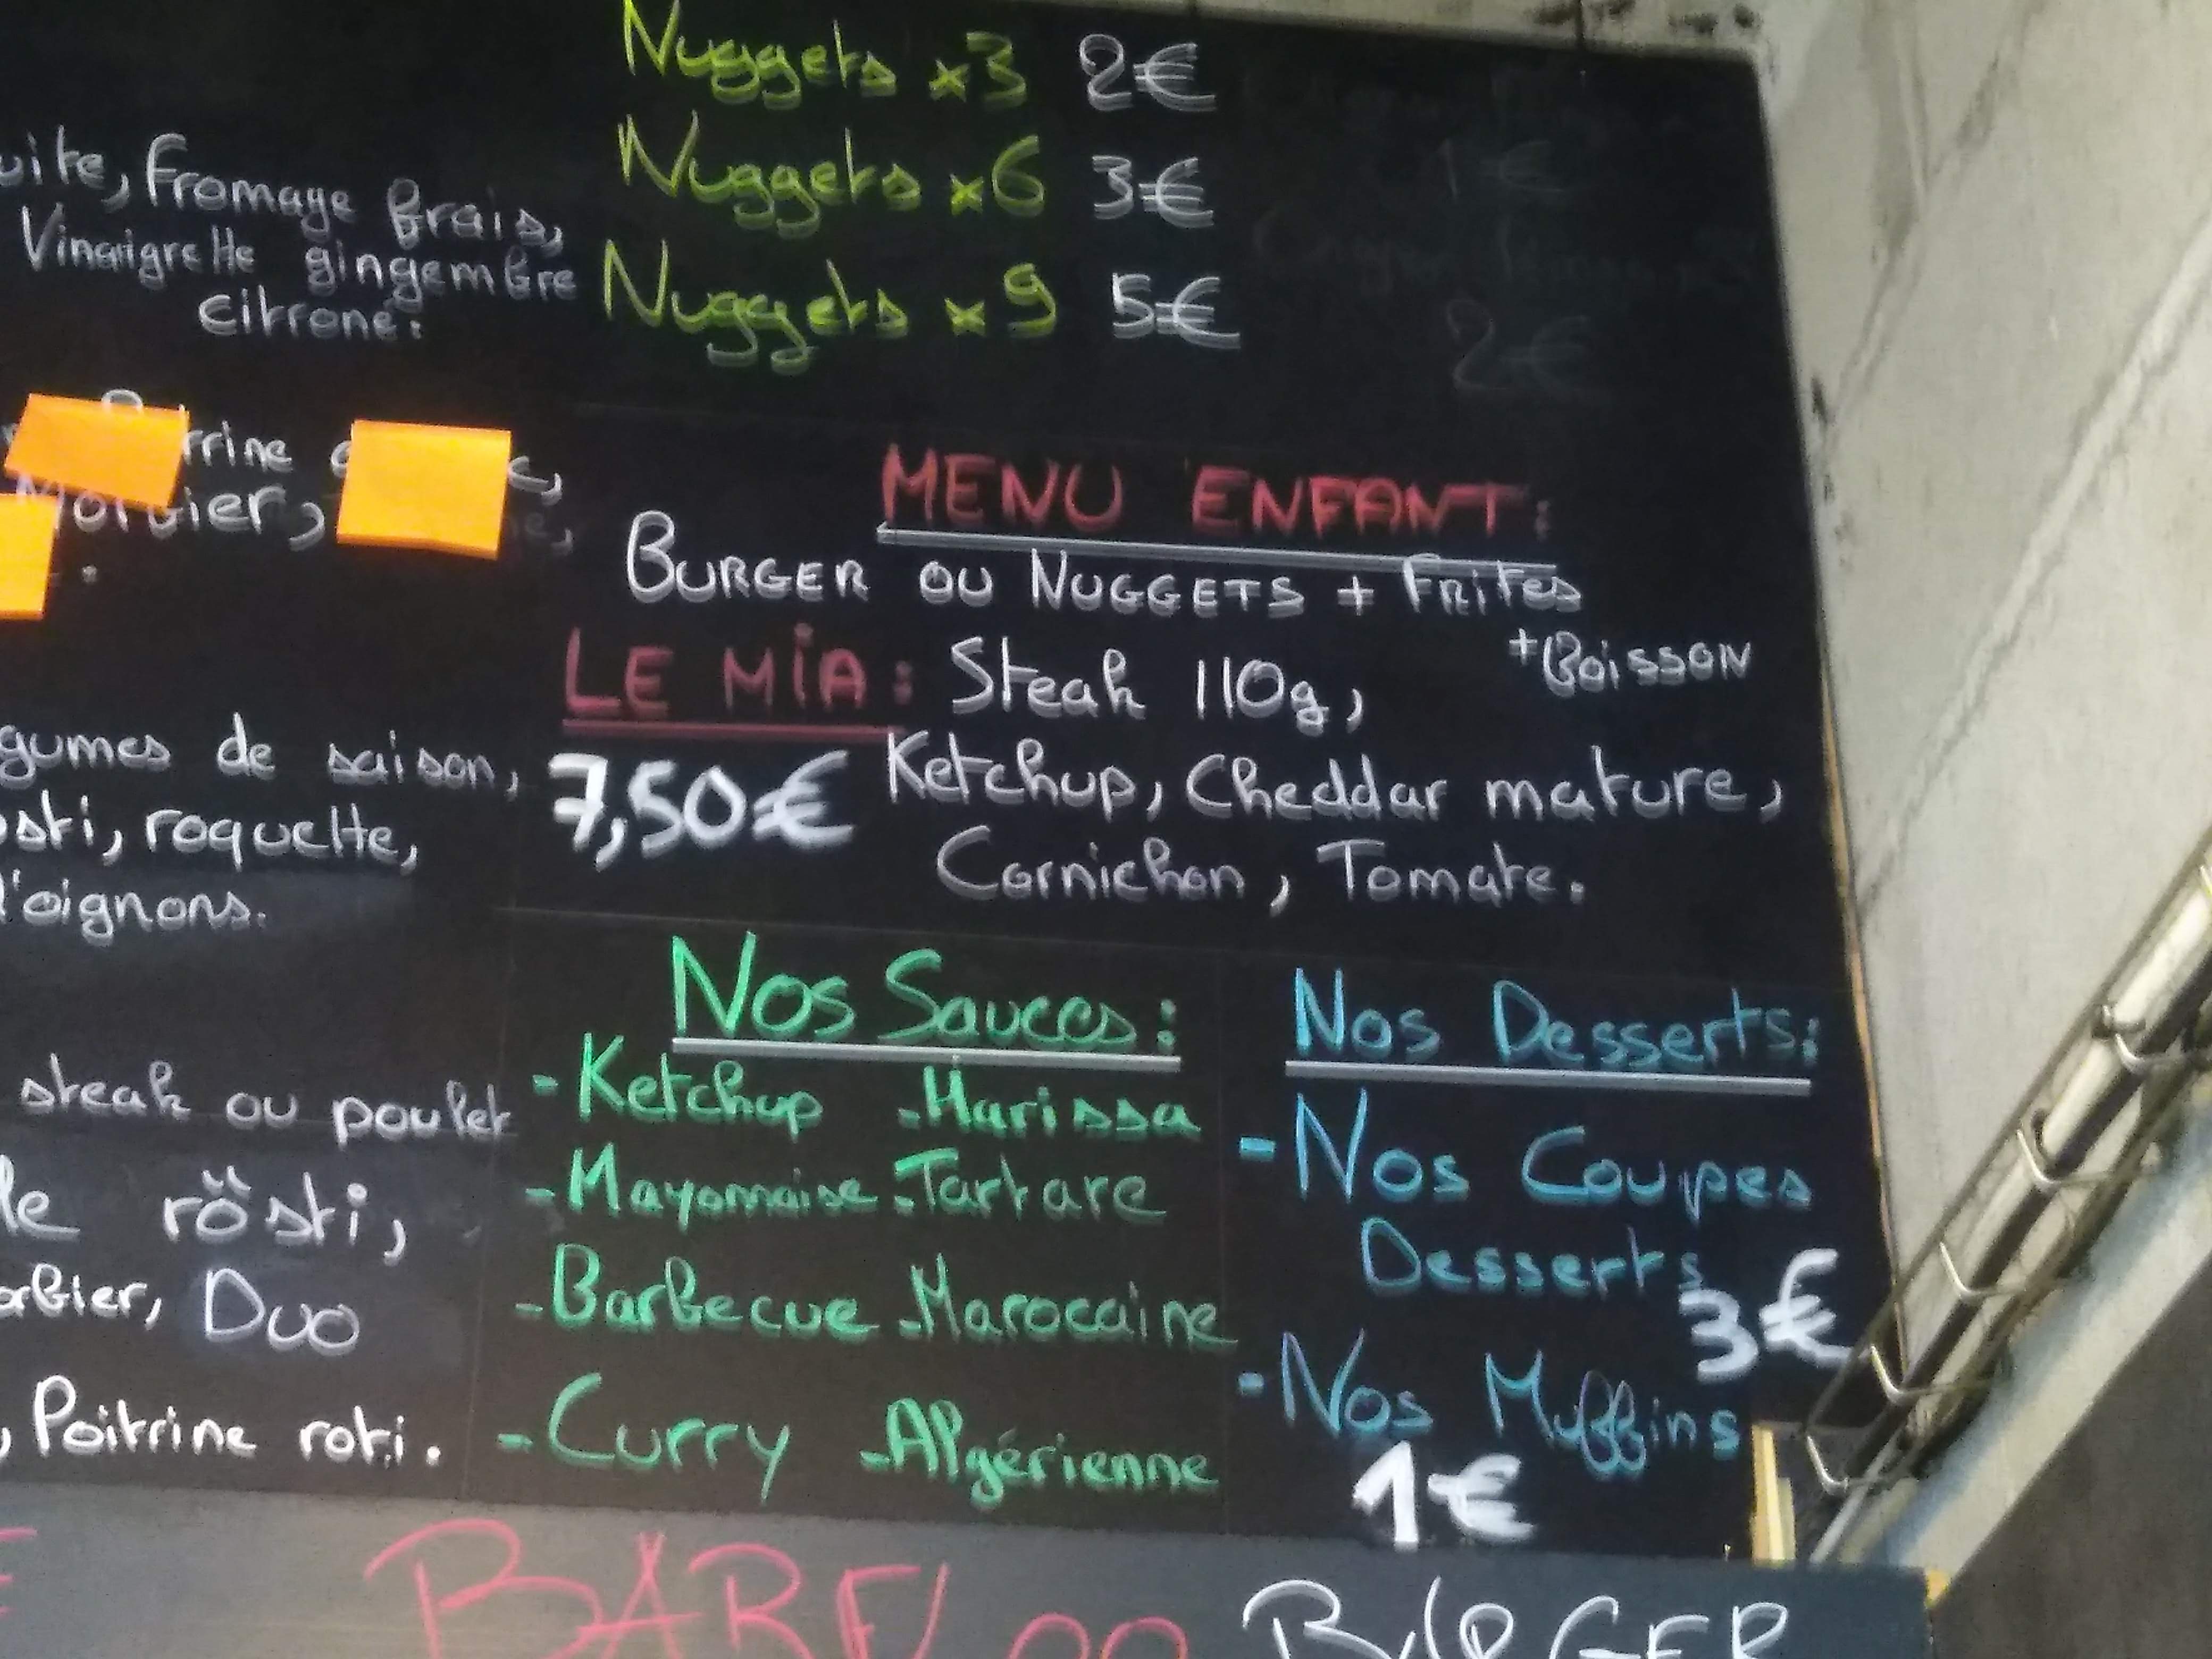 Nuggets x3 2€
Nuggets x6 3€
Nuggets x9 5€
uite, Fromage frais,
Vinaigrette gingembre
Citroné.
rrine
gumes de saison,
sti, roquette,
d'oignons.
steak ou poulet
le rösti,
orbier, Duo
, Poitrine roti.
MENU ENFANT:
BURGER OU NUGGETS + Frites
+Boisson
LE MiA: Steak 110g,
7,50€ Ketchup, Cheddar mature,
Cornichon, Tomate.
Nos Sauces:
-Ketchup -Harissa
-Mayonnaise -Tartare
-Barbecue -Marocaine
-Curry -Algérienne
Nos Desserts:
-Nos Coupes
Desserts
3€
-Nos Muffins
1€
BURGER